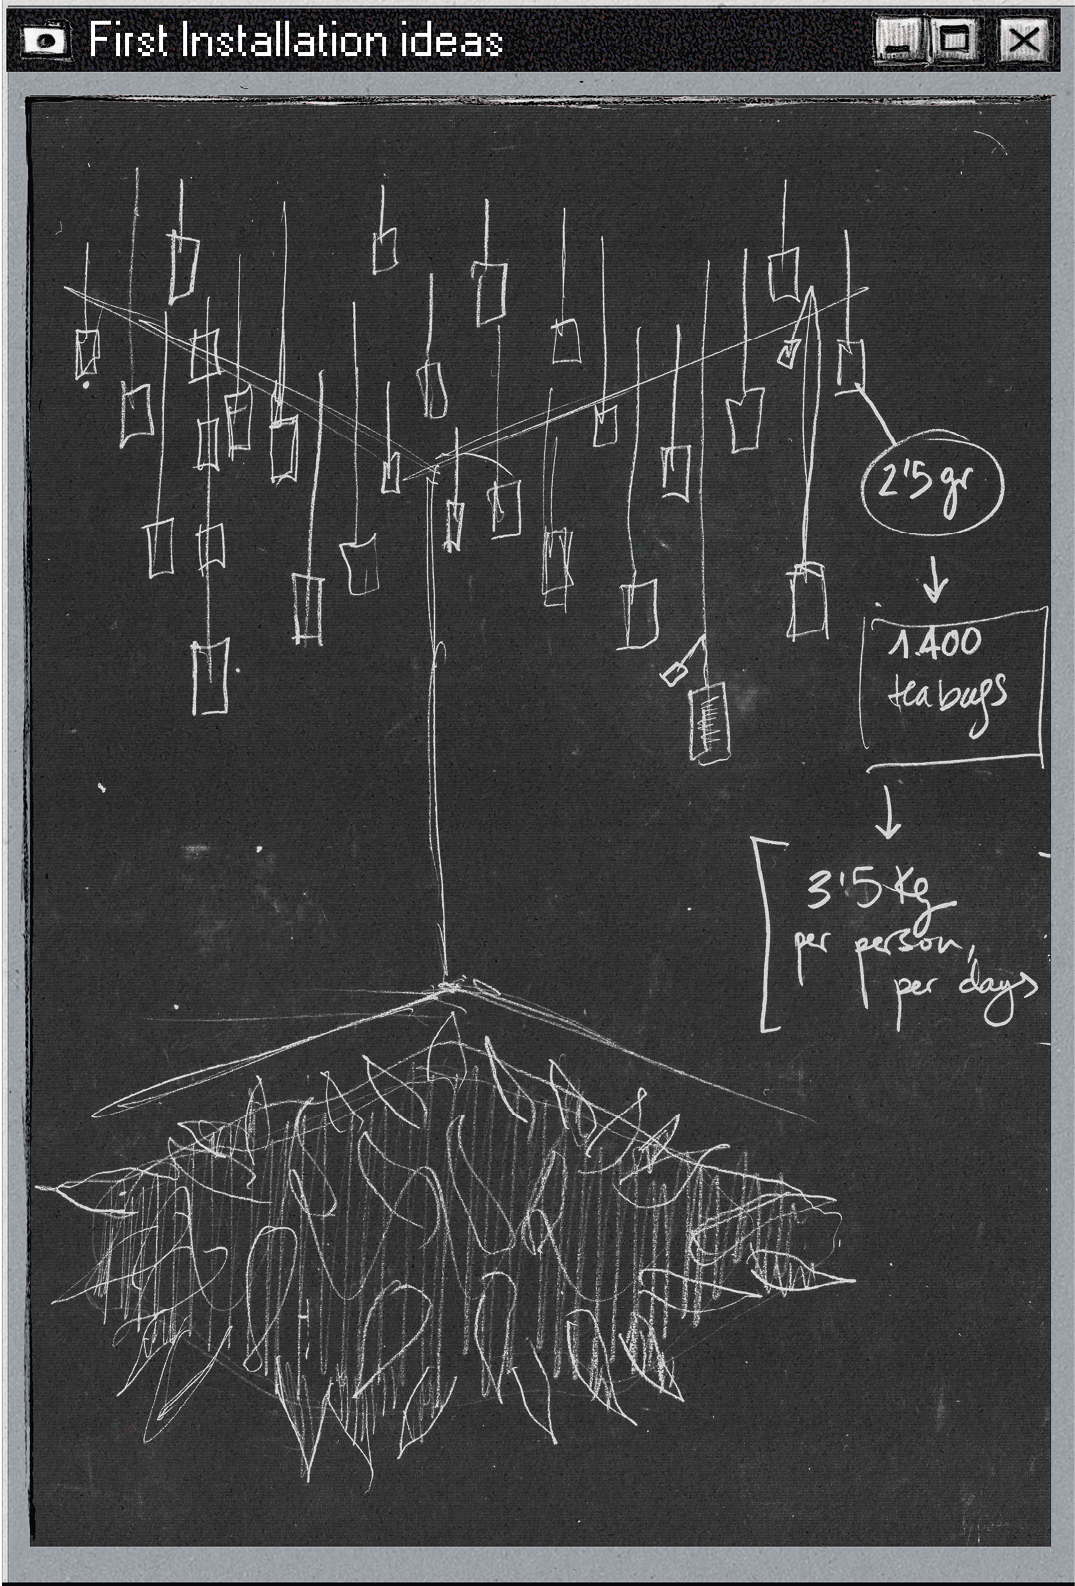 First Installation ideas
2'5 gr
1.400
teabags
3'5 Kg
per person,
per days